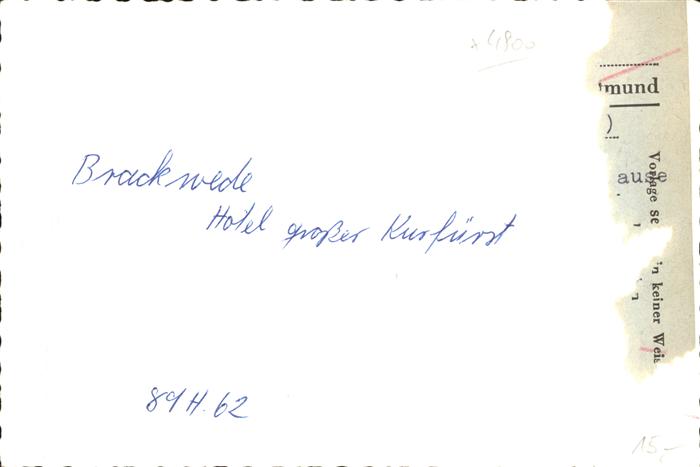 *4800
Brackwede
Hotel großer Kurfürst
89 H. 62
15,-
mund
)
ause
Vorlage se
in keiner Weis